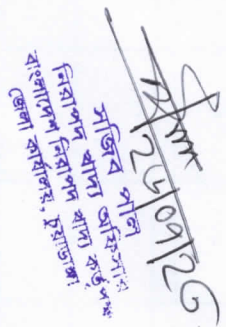 সজিব পাল
নিরাপদ খাদ্য অফিসার
বাংলাদেশ নিরাপদ খাদ্য কর্তৃপক্ষ
জেলা কার্যালয়, চুয়াডাঙ্গা।